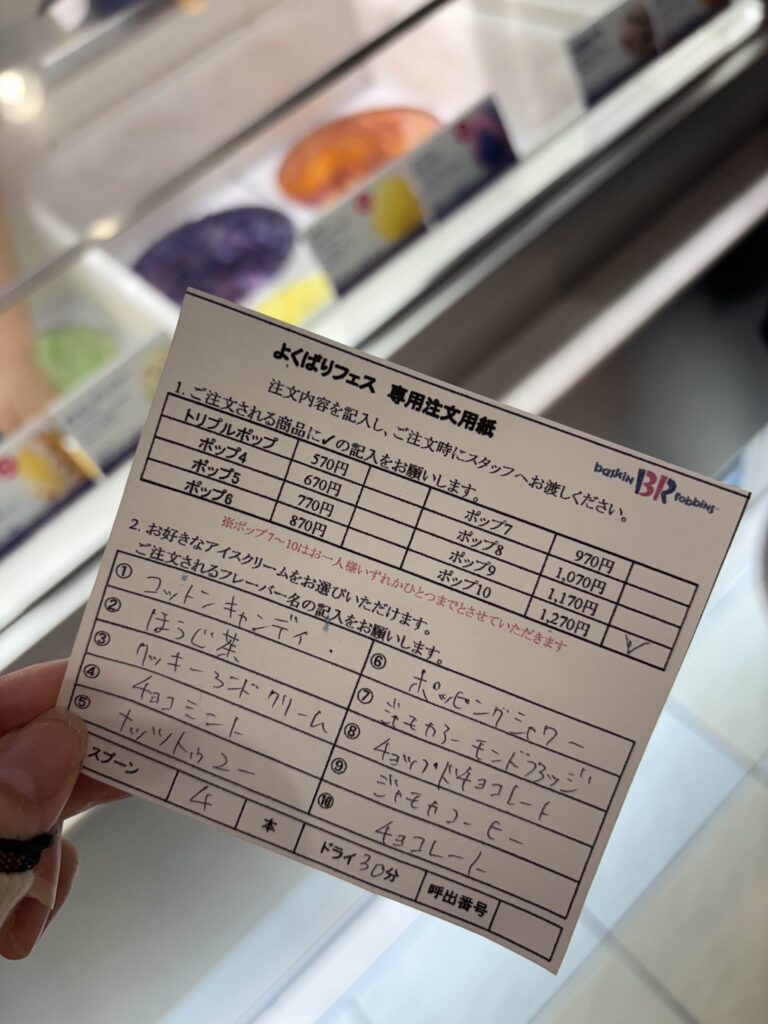 よくばりフェス 専用注文用紙
注文内容を記入し、ご注文時にスタッフへお渡しください。
baskin BR robbins
1. ご注文される商品に✓の記入をお願いします。
トリプルポップ 570円 ポップ7 970円
ポップ4 670円 ポップ8 1,070円
ポップ5 770円 ポップ9 1,170円
ポップ6 870円 ポップ10 1,270円 ✓
※ポップ7～10はお一人様いずれかひとつまでとさせていただきます
2. お好きなアイスクリームをお選びいただけます。
ご注文されるフレーバー名の記入をお願いします。
① コットンキャンディ
② ほうじ茶
③ クッキーアンドクリーム
④ チョコミント
⑤ ナッツトゥユー
⑥ ポッピングシャワー
⑦ ジャモカアーモンドファッジ
⑧ チョップドチョコレート
⑨ ジャモカコーヒー
⑩ チョコレート
スプーン 4 本 ドライ 30分 呼出番号